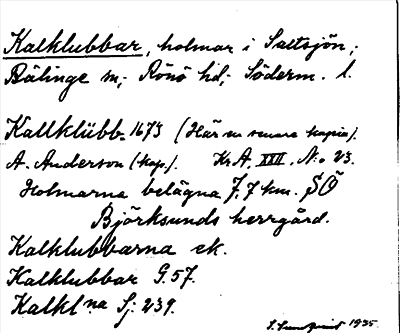 Kalklubbar, holmar i Saltsjön,
Bälinge sn; Rönö hd; Söderm. l.
Kallklübb- 1673 (Här en senare kopia).
A. Anderson (kop.). Kr.A. XXII. No 23.
Holmarna belägna 7,7 km. SÖ
Björksunds herrgård.
Kalklubbarna ek.
Kalklubbar G.57.
Kalkl:na Sj: 239.
1935.